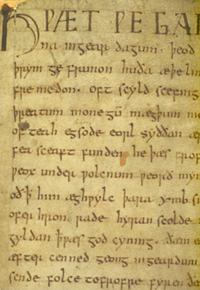 HǷÆT ǷE GA
na ingear dagum. þeod
þrym ge frunon huða æþelin
fre medon. oft scyld scefing
þreatum monegū mægþum me
of teah egsode eorl syððan æ
fea sceaft funden he þæs frof
ƿeox under ƿolcnum ƿeorð myn
oð ꝥ him æghƿylc þara ymb s
ofer hron rade hyran scolde
gyldan ꝥ ƿæs god cyning. ðæm e
æfter cenned geong ingeardum
sende folce tofrofre fyren ðe